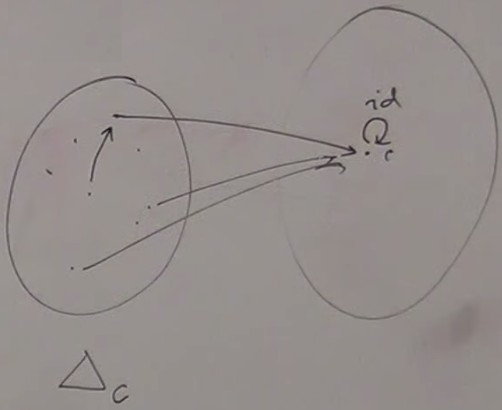 id
c
△c